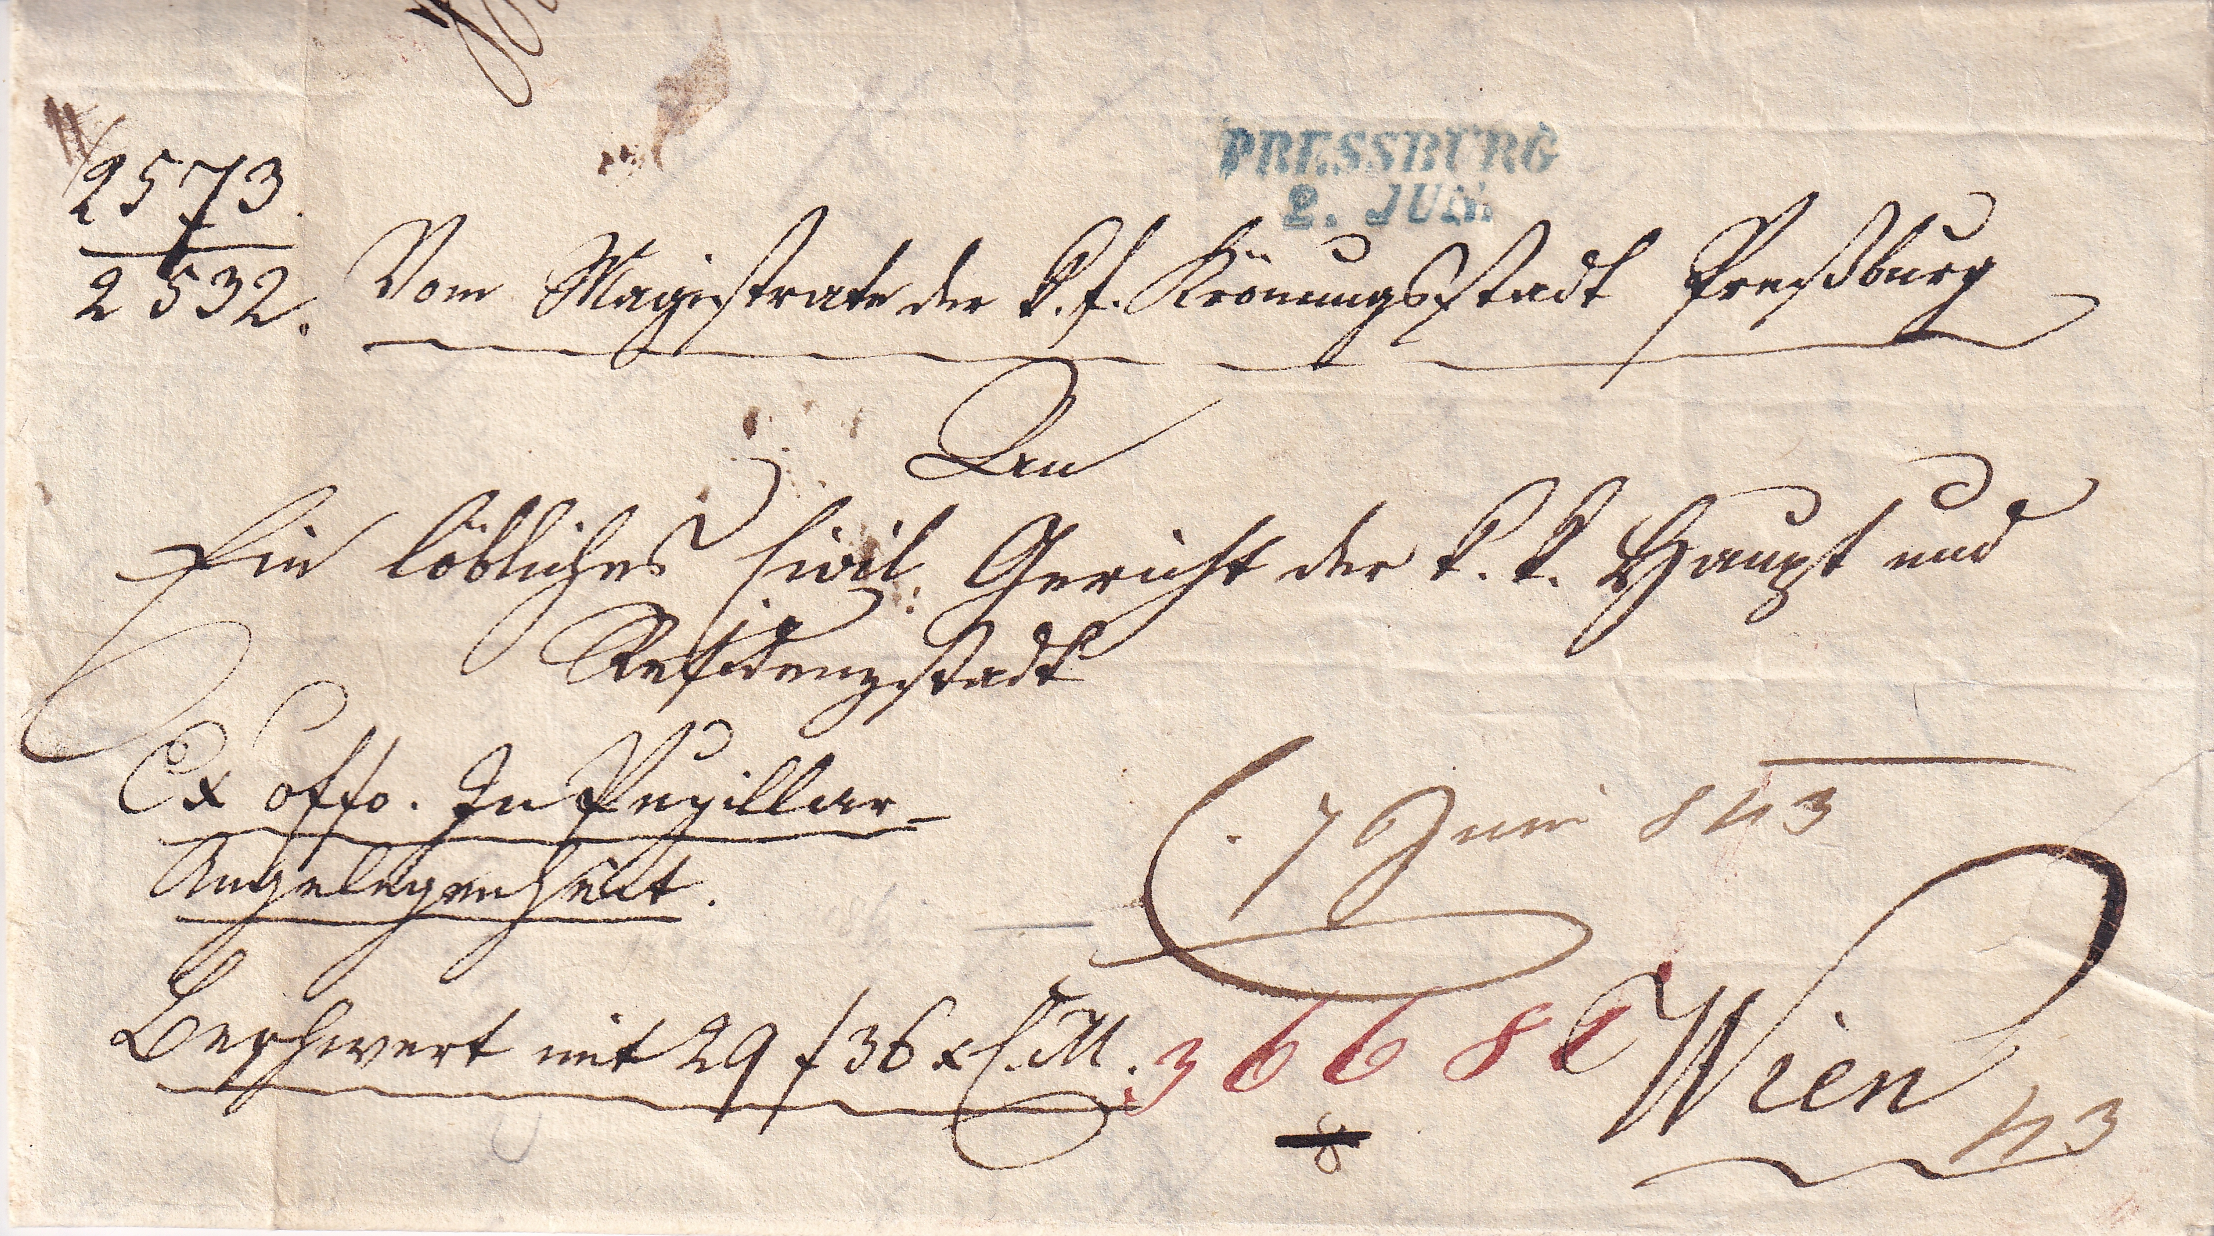 PRESSBURG
2. JUN.
2573.
2532.
Vom Magistrate der k. f. Krönungsstadt Preßburg
An
Ein löbliches Civil: Gericht der k. k. Haupt und
Residenzstadt
Ex offo. In Pupillar-
Angelegenheit.
7 Juni 843
Beschwert mit 29 f 36 x C. M.
3668
Wien
43
8